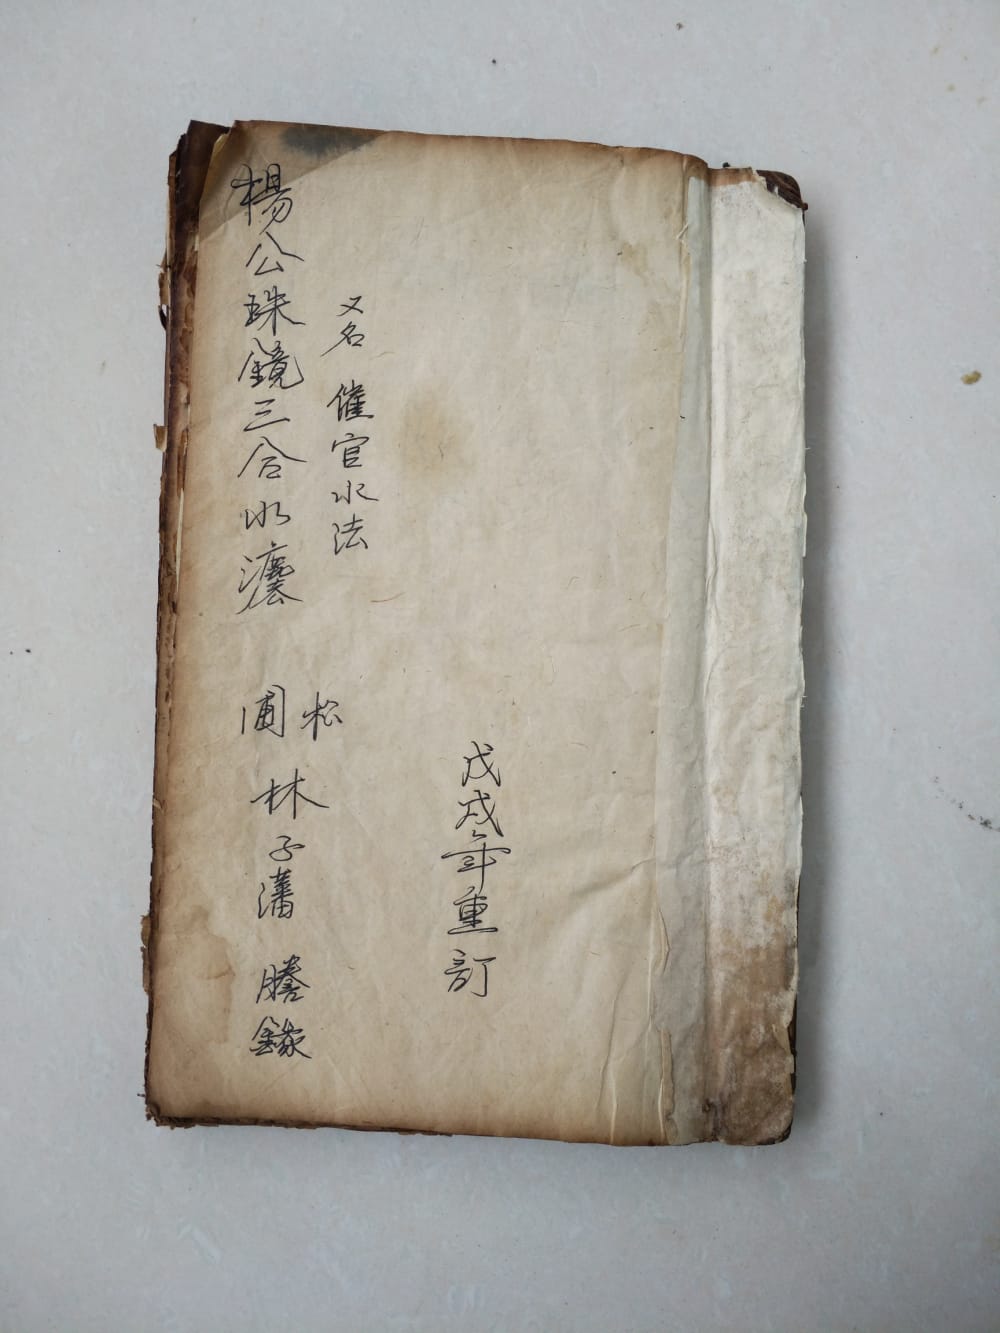 戊戌年重訂
又名 催官水法
楊公珠鏡三合水灋
松圃 林子藩 謄錄